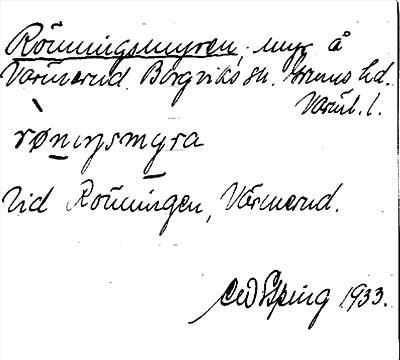 Rönningsmyren, myr å
Värmerud. Borgviks sn. Grums hd.
Värml. l.
rønıŋsmyra
Vid Rönningen, Värmerud.
1933.